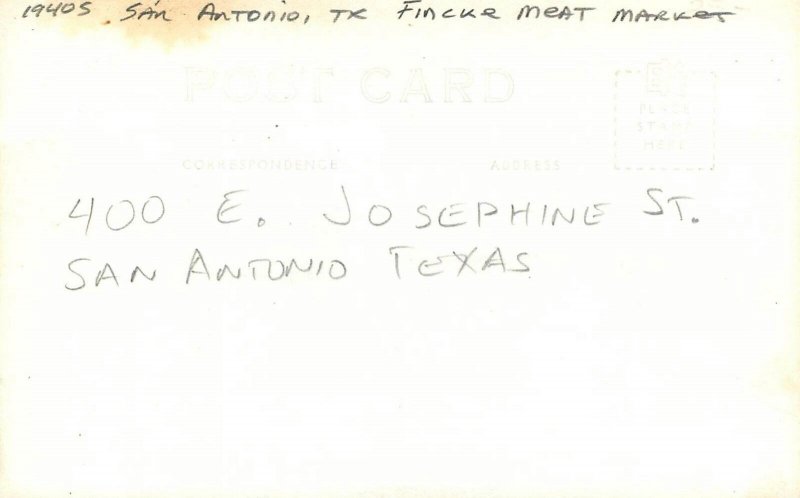 1940S SAN ANTONIO, TX FINCKE MEAT MARKET
POST CARD
PLACE
STAMP
HERE
CORRESPONDENCE ADDRESS
400 E. JOSEPHINE ST.
SAN ANTONIO TEXAS